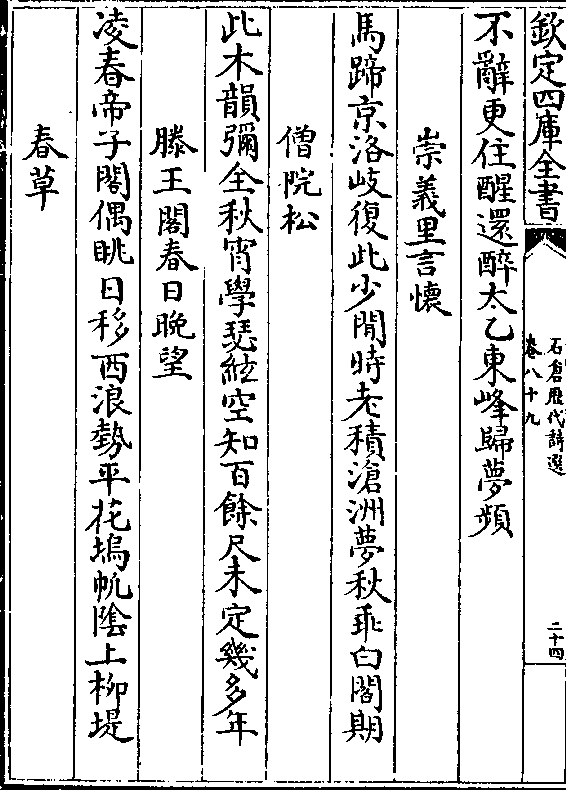 欽定四庫全書
石倉歷代詩選
卷八十九
二十四
不辭更住醒還醉太乙東峰歸夢頻
崇義里言懷
馬蹄京洛岐復此少閒時老積滄洲夢秋乖白閣期
僧院松
此木韻彌全秋宵學瑟絃空知百餘尺未定幾多年
滕王閣春日晚望
凌春帝子閣偶眺日移西浪勢平花塢帆陰上柳堤
春草